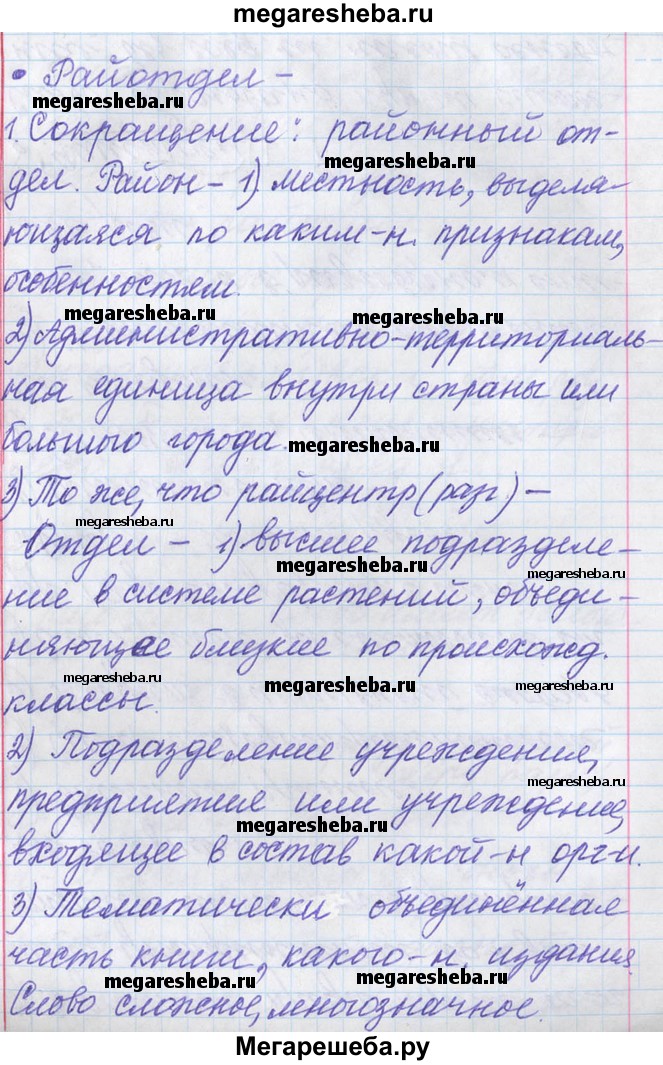 megaresheba.ru
• Райотдел –
megaresheba.ru
1. Сокращение: районный от-
megaresheba.ru
дел. Район – 1) местность, выделя-
ющаяся по каким-н. признакам,
особенностям.
megaresheba.ru megaresheba.ru
2) Административно-территориаль-
ная единица внутри страны или
большого города.
megaresheba.ru
3) То же, что райцентр (разг) –
megaresheba.ru
Отдел – 1) высшее подразделе-
megaresheba.ru
ние в системе растений, объеди-
няющее близкие по происхожд.
megaresheba.ru megaresheba.ru megaresheba.ru
классы.
2) Подразделение учреждения,
megaresheba.ru
предприятие или учреждение,
megaresheba.ru
входящее в состав какой-н орг-и.
3) Тематически объединённая
часть книги, какого-н. издания.
megaresheba.ru megaresheba.ru
Слово сложное, многозначное.
Мегарешеба.ру